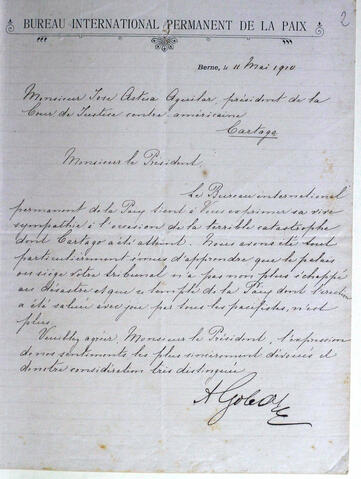 2
BUREAU INTERNATIONAL PERMANENT DE LA PAIX
Berne, le 11 Mai 1910
Monsieur Jose Astua Aguilar, président de la
Cour de Justice centre américaine
Cartago
Monsieur le Président.
Le Bureau international
permanent de la Paix tient à Vous exprimer sa vive
sympathie à l'occasion de la terrible catastrophe
dont Cartago a été atteint. Nous avons été tout
particulièrement émus d'apprendre que le palais
où siège Votre tribunal n'a pas non plus échappé
au désastre et que ce temple de la Paix dont l'érection
a été saluée avec joie par tous les pacifistes, n'est
plus.
Veuillez agréer, Monsieur le Président, l'expression
de nos sentiments les plus sincèrement dévoués et
de notre considération très distinguée
A Gobat